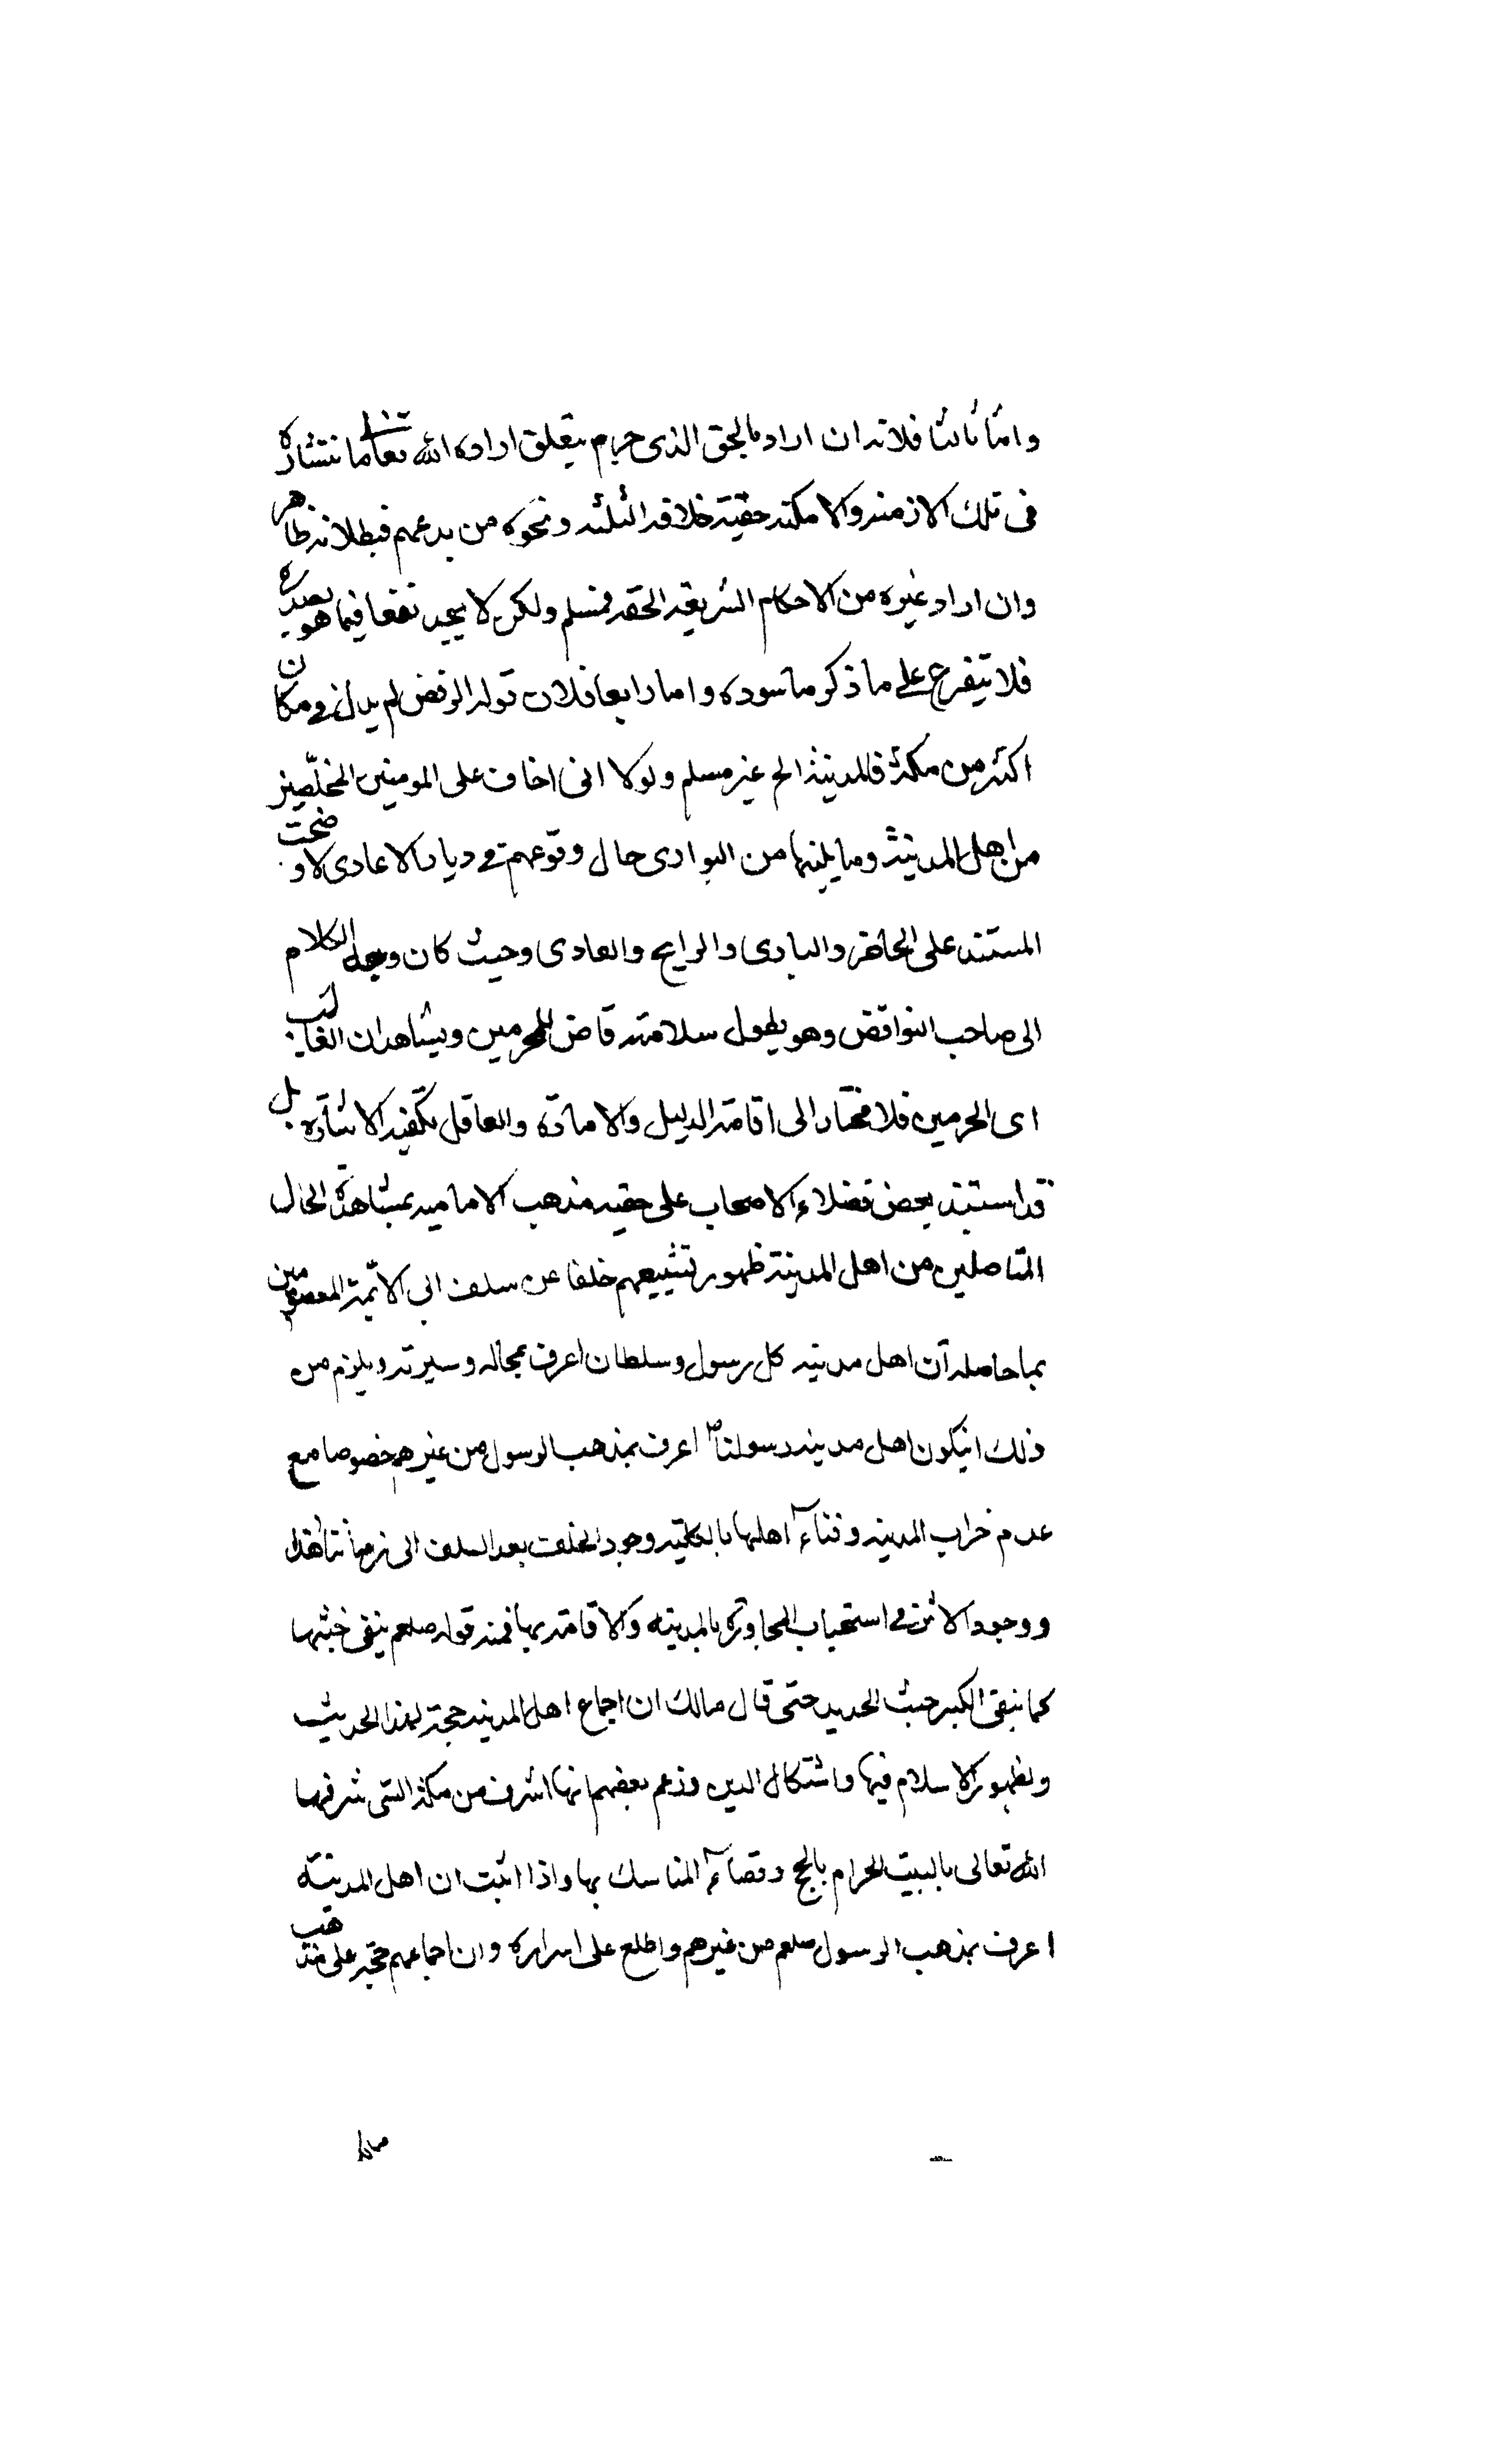 واما ثالثا فلانه ان اراد بالحق الذى جزم بتعلق اراده الله تعالى بانتشاره
فى تلك الازمنه والامكنه حقية خلافه الثلثه ونحوه من بدعهم فبطلانه ظاهر
وان اراد غيره من الاحكام الشريفه الحقه فمسلم ولكن لا يجد نفعا فيما هو بصدده
فلا يتفرع على ما ذكر ما سوده واما رابعا فلان قوله الرفض لم يدل فى مكان
اكثر من مكة فالمدينة الخ غير مسلم ولولا انى اخاف على المومنين المخلّصين
من اهل المدينة وما يليها من البوادى حال وقوعهم فى ديار الاعادى لاوضحت
المستند على الحاضر والبادى والرايح والعادى وحيث كان وجه الكلام
الى صاحب النواقض وهو يقول سلامته قاض للحرمين ويشاهدان الغائب
اى الحرمين فلا نحتاج الى اقامة الدليل والامارة والعاقل تكفيه الاشارة بل
قد استند بعض فضلاء الاصحاب على حقيه مذهب الاماميه بمشاهدة الحال
المتاصلين من اهل المدينة ظهور تشيعهم خلفا عن سلف الى الائمة المعصومين
بما حاصله ان اهل مدينه كل رسول وسلطان اعرف بحاله وسيرته ويلزم من
ذلك انيكون اهل مدينه رسولنا ص اعرف بمذهب الرسول من غيرهم خصوصا مع
عدم خراب المدينه وفناء اهلها بالكليه وجود الخلف بعد السلف الى زماننا هذا
ووجود الاثر فى استحباب المجاورة بالمدينه والاقامة بها فمنه قوله صلعم ينفى خبثها
كما ينقى الكير خبث الحديد حتى قال مالك ان اجماع اهل المدينه حجة لهذا الحديث
ولظهور الاسلام فيها واشتكال الدين وزعم بعضهم انها اشرف من مكة التى شرفها
الله تعالى بالبيت الحرام بالحج وقضاء المناسك بها واذا اثبت ان اهل المدينه
اعرف بمذهب الرسول صلعم من غيرهم واطلع على اسراره وان اجماعهم حجة على مذهب